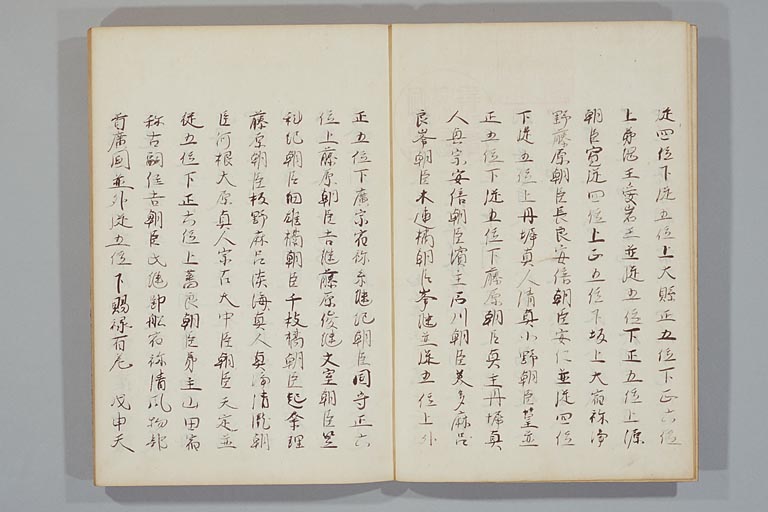 従四位下従五位上大縣正五位下正六位
上弟湿王安岩王並従五位下正五位上源
朝臣寛従四位上正五位下坂上大宿祢浄
野藤原朝臣長良安倍朝臣安仁並従四位
下従五位上丹墀真人清真小野朝臣篁並
正五位下従五位下藤原朝臣真主丹墀真
人真宗安倍朝臣濱主石川朝臣英多麻呂
良岑朝臣木連橘朝臣岑継並従五位上外
正五位下廣宗宿祢糸継紀朝臣国守正六
位上藤原朝臣吉継藤原俊継文室朝臣笠
礼紀朝臣綱雄橘朝臣千枝橘朝臣起奈理
藤原朝臣板野麻呂淡海真人真浄清瀧朝
臣河根大原真人宗石大中臣朝臣天定並
従五位下正六位上萬良朝臣弟主山田宿
祢古嗣住吉朝臣氏継御船宿祢清風物部
首廣国並外従五位下賜禄有差 戊申天